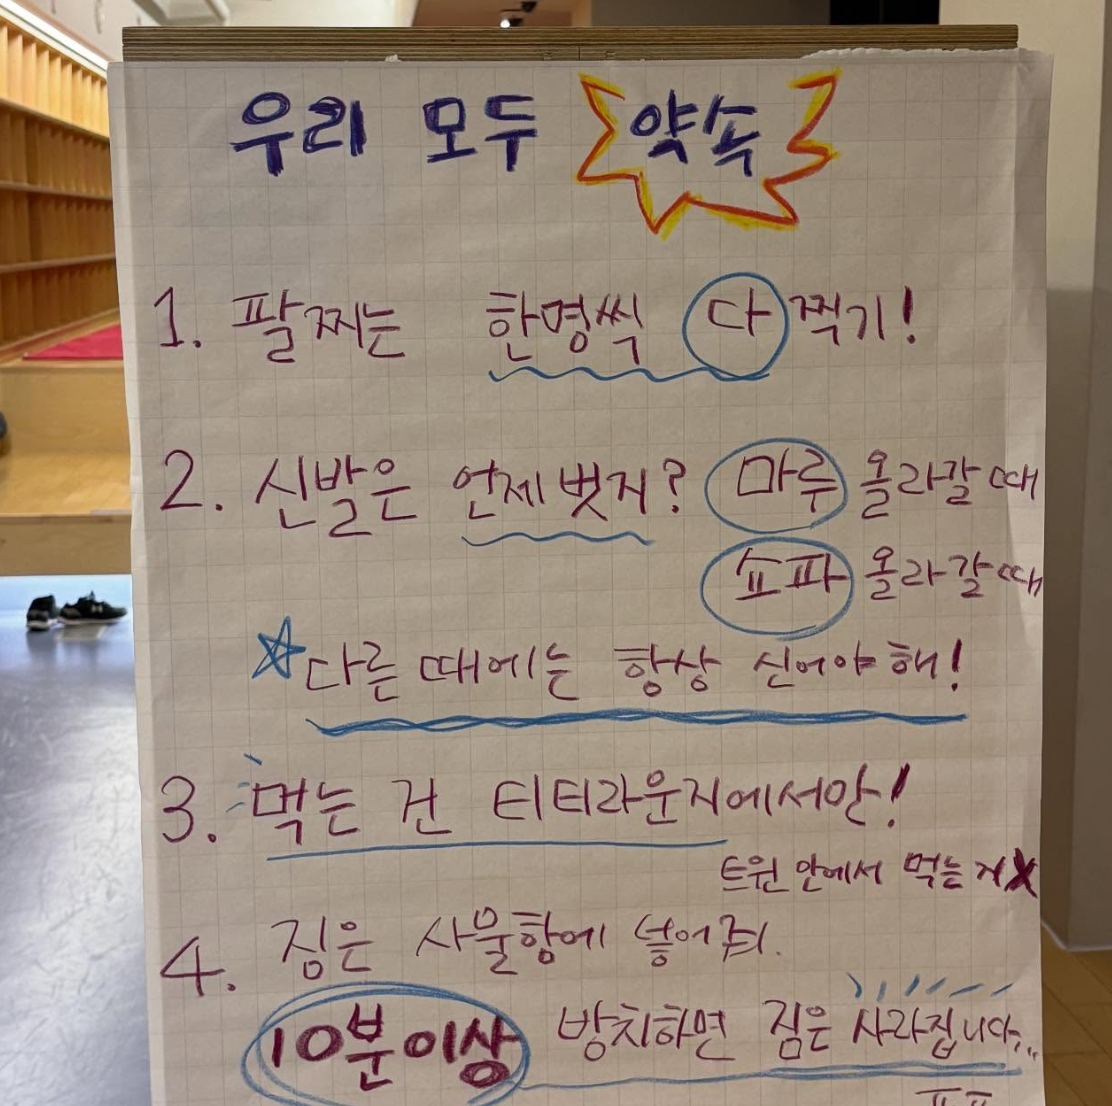 우리 모두 약속
1. 팔찌는 한명씩 다 찍기!
2. 신발은 언제 벗지? 마루 올라갈 때
쇼파 올라갈 때
다른 때에는 항상 신어야 해!
3. 먹는 건 티티라운지에서만!
트윈 안에서 먹는 거 X
4. 짐은 사물함에 넣어줘.
10분이상 방치하면 짐은 사라집니다...